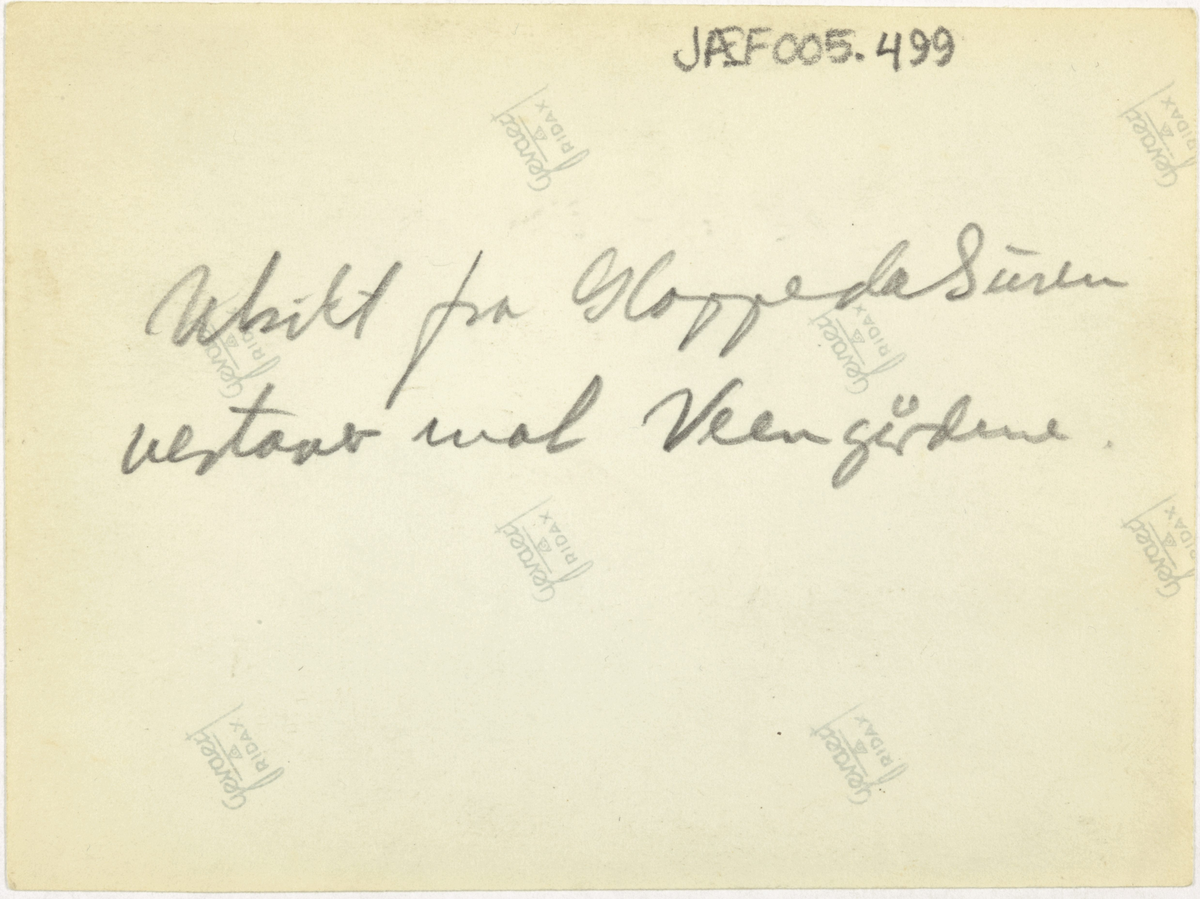 JÆF005.499
Utsikt fra Gloppeda Suren
vestover mot Veen gårdene.
Gevaert
RIDAX
Gevaert
RIDAX
Gevaert
RIDAX
Gevaert
RIDAX
Gevaert
RIDAX
Gevaert
RIDAX
Gevaert
RIDAX
Gevaert
RIDAX